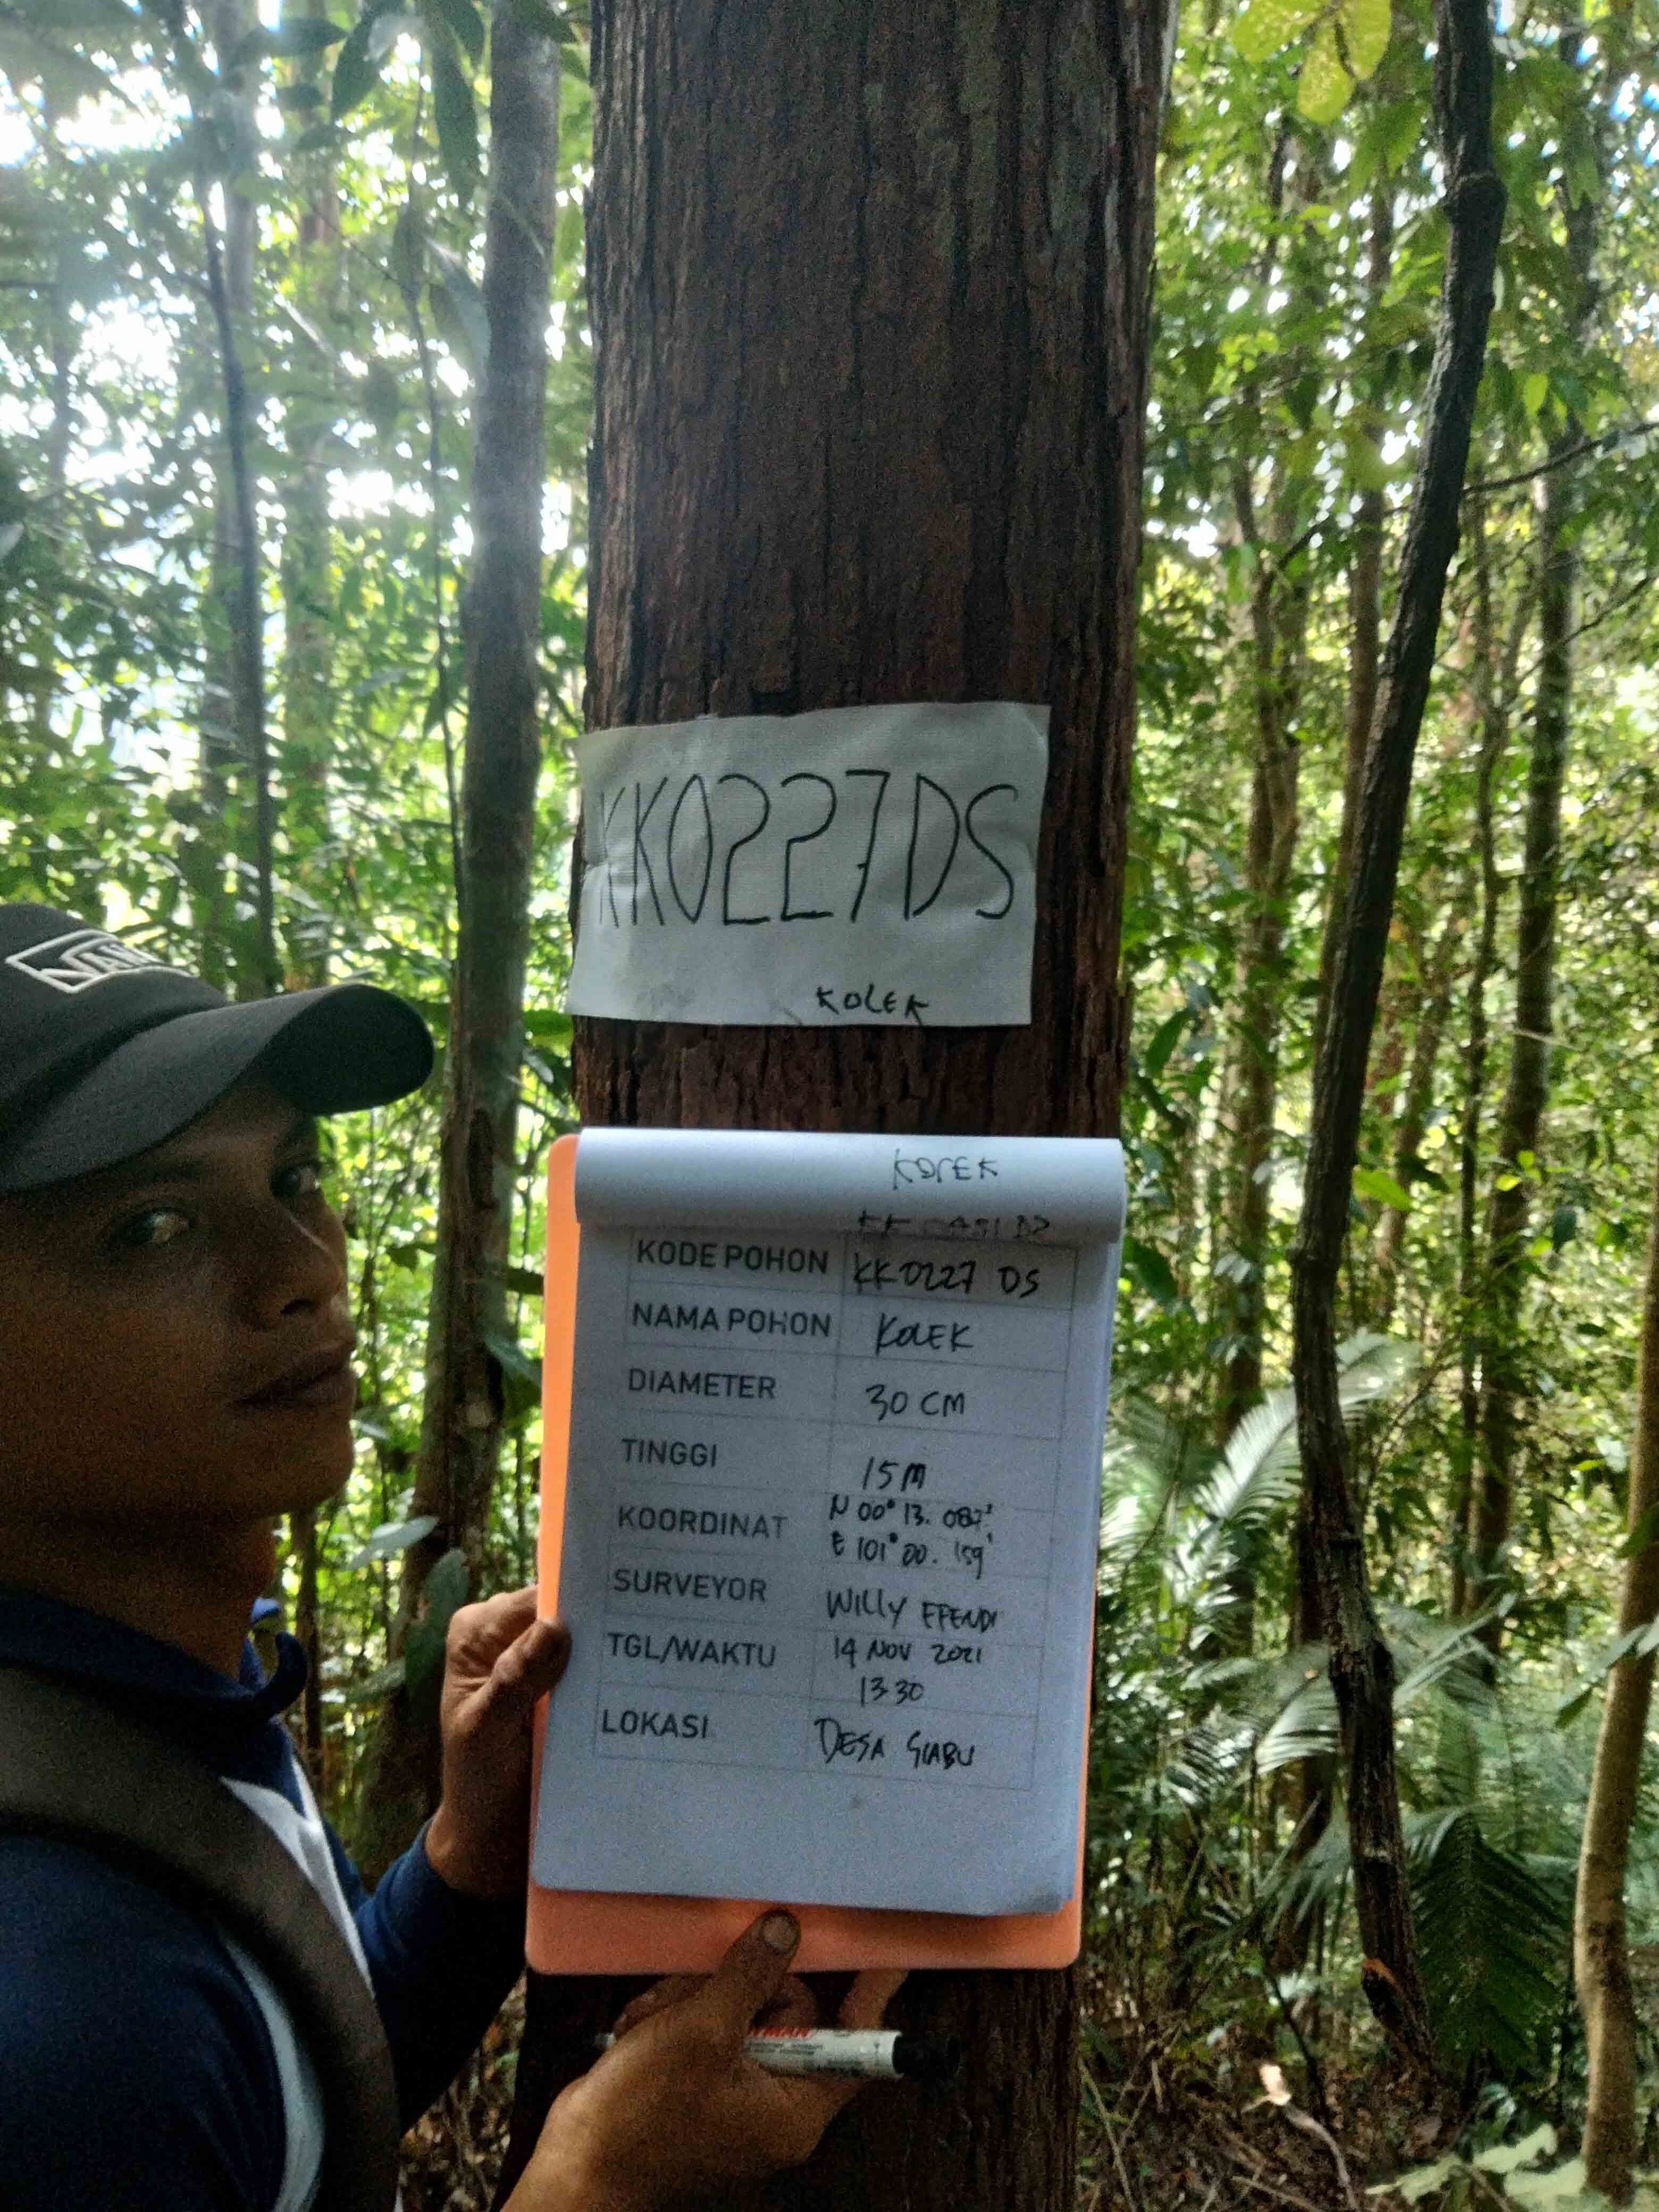 KK0227DS
KOLEK
VANS
KOLEK
KODE POHON KK0227 DS
NAMA POHON KOLEK
DIAMETER 30 CM
TINGGI 15 M
KOORDINAT N 00° 13. 087'
E 101° 00. 159'
SURVEYOR WILLY EFENDI
TGL/WAKTU 14 NOV 2021
13 30
LOKASI DESA SIABU